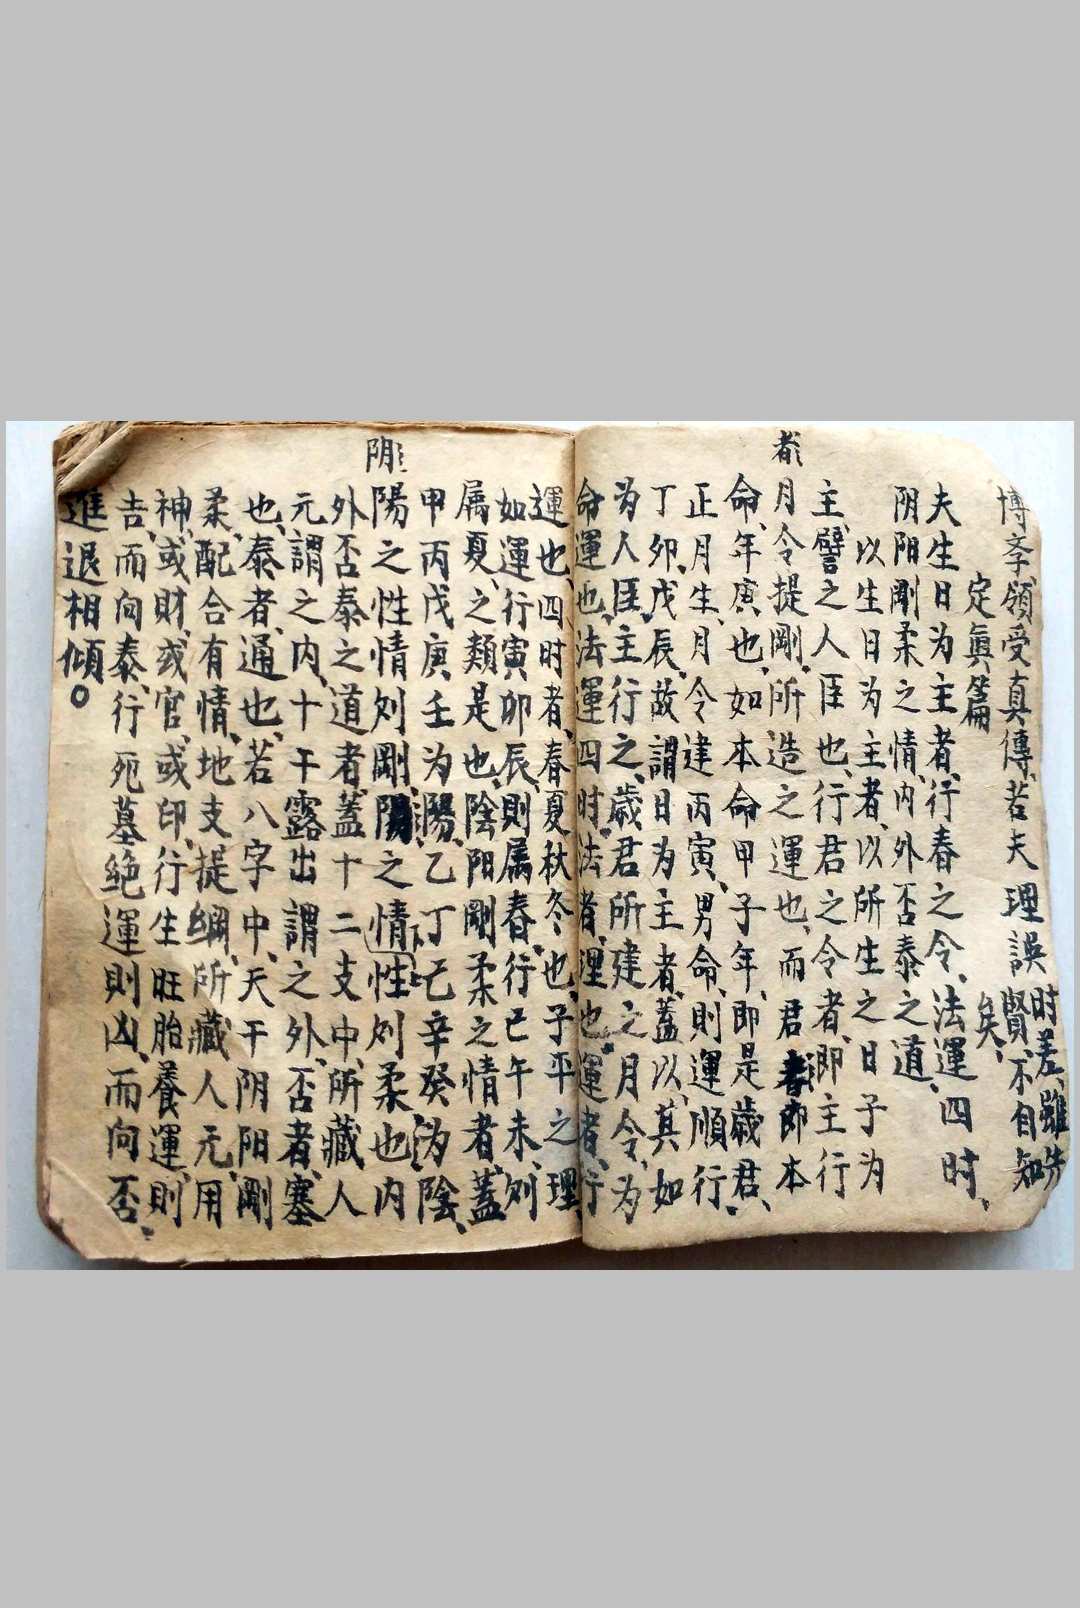 者
博孝領受真傳、若夫理誤時差、雖先賢、不自知矣、
定眞篇
夫生日为主者、行春之令、法運四时、
阴阳剛柔之情、内外否泰之道、
以生日为主者、以所生之日子为
主、譬之人臣也、行君之令者、即主行
月令提剛、所造之運也、而君即本
命、年庚也、如本命甲子年、即是歲君、
正月生、月令建丙寅、男命、則運順行、
丁卯、戊辰、故謂日为主者、蓋以、其如
为人臣、主行之、歲君所建之月令、为
命運也、法運四时、法者、理也、運者、行
阴
運也、四时者、春夏秋冬也、子平之理、
如運行寅卯辰、則属春、行巳午未、则
属夏、之類是也、陰阳剛柔之情者、蓋
甲丙戊庚壬为陽、乙丁己辛癸为陰、
陽之性情则剛、之情性则柔也、内
外否泰之道者、蓋十二支中、所藏人
元、謂之内、十干露出謂之外、否者、塞
也、泰者、通也、若八字中、天干阴阳剛
柔、配合有情、地支提綱、所藏人元、用
神、或財、或官、或印、行生旺胎養運、則
吉、而向泰、行死墓绝運則凶、而向否、
進退相傾。